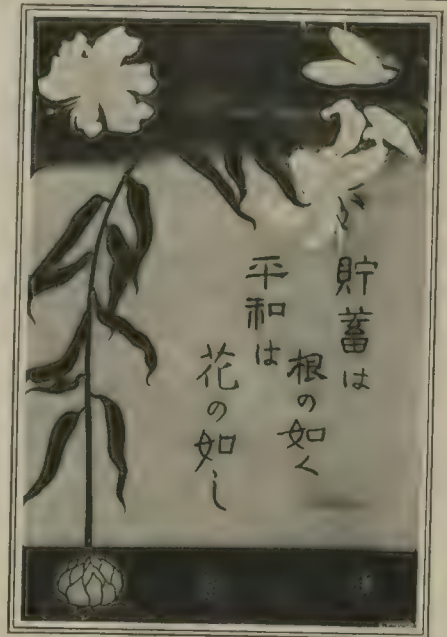 貯蓄は
根の如く
平和は
花の如し